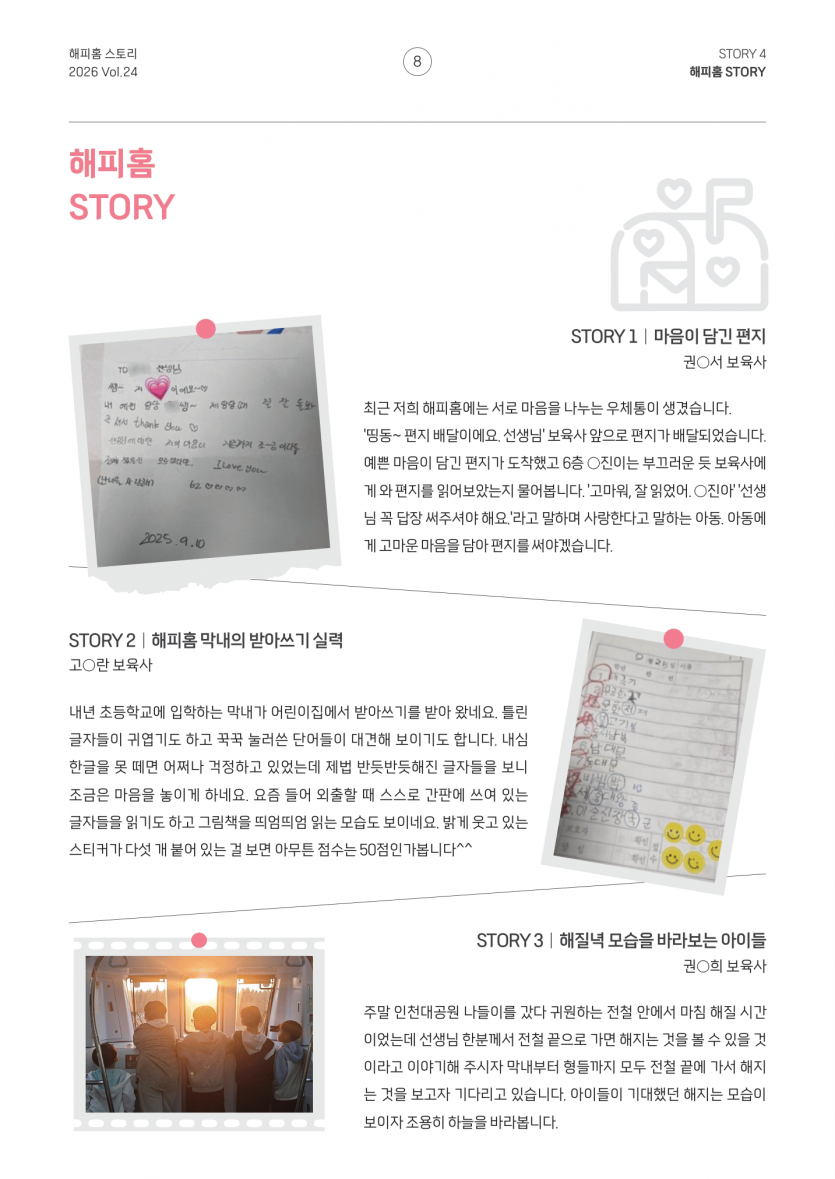 해피홈 스토리
2026 Vol.24
8
STORY 4
해피홈 STORY
해피홈
STORY
TO
선생님
thank you ♡
I love you
2025. 9. 10
STORY 1 | 마음이 담긴 편지
권○서 보육사
최근 저희 해피홈에는 서로 마음을 나누는 우체통이 생겼습니다.
'띵동~ 편지 배달이에요. 선생님' 보육사 앞으로 편지가 배달되었습니다.
예쁜 마음이 담긴 편지가 도착했고 6층 ○진이는 부끄러운 듯 보육사에
게 와 편지를 읽어보았는지 물어봅니다. '고마워, 잘 읽었어. ○진아' '선생
님 꼭 답장 써주셔야 해요.'라고 말하며 사랑한다고 말하는 아동. 아동에
게 고마운 마음을 담아 편지를 써야겠습니다.
STORY 2 | 해피홈 막내의 받아쓰기 실력
고○란 보육사
내년 초등학교에 입학하는 막내가 어린이집에서 받아쓰기를 받아 왔네요. 틀린
글자들이 귀엽기도 하고 꾹꾹 눌러쓴 단어들이 대견해 보이기도 합니다. 내심
한글을 못 떼면 어쩌나 걱정하고 있었는데 제법 반듯반듯해진 글자들을 보니
조금은 마음을 놓이게 하네요. 요즘 들어 외출할 때 스스로 간판에 쓰여 있는
글자들을 읽기도 하고 그림책을 띄엄띄엄 읽는 모습도 보이네요. 밝게 웃고 있는
스티커가 다섯 개 붙어 있는 걸 보면 아무튼 점수는 50점인가봅니다^^
남대문
동대문
STORY 3 | 해질녘 모습을 바라보는 아이들
권○희 보육사
주말 인천대공원 나들이를 갔다 귀원하는 전철 안에서 마침 해질 시간
이었는데 선생님 한분께서 전철 끝으로 가면 해지는 것을 볼 수 있을 것
이라고 이야기해 주시자 막내부터 형들까지 모두 전철 끝에 가서 해지
는 것을 보고자 기다리고 있습니다. 아이들이 기대했던 해지는 모습이
보이자 조용히 하늘을 바라봅니다.